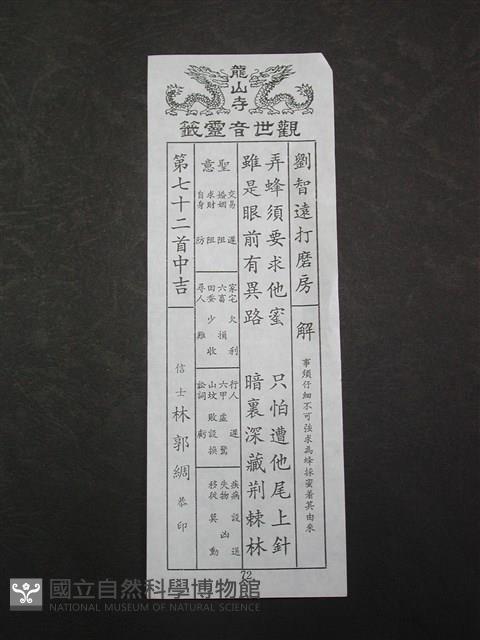 龍山寺
觀世音靈籤
劉智遠打磨房
解
事須仔細不可強求為蜂採蜜著其由來
弄蜂須要求他蜜 只怕遭他尾上針
雖是眼前有異路 暗裏深藏荆棘林
聖意
交易 遲
婚姻 阻
求財 阻
自身 防
家宅 欠利
六畜 損
田蚕 少收
尋人 難
行人 遲
六甲 虛驚
山坟 敗設損
訟詞 虧
疾病 設送
失物 凶
移徙 莫動
第七十二首中吉
信士 林郭綢 恭印
72
國立自然科學博物館
NATIONAL MUSEUM OF NATURAL SCIENCE